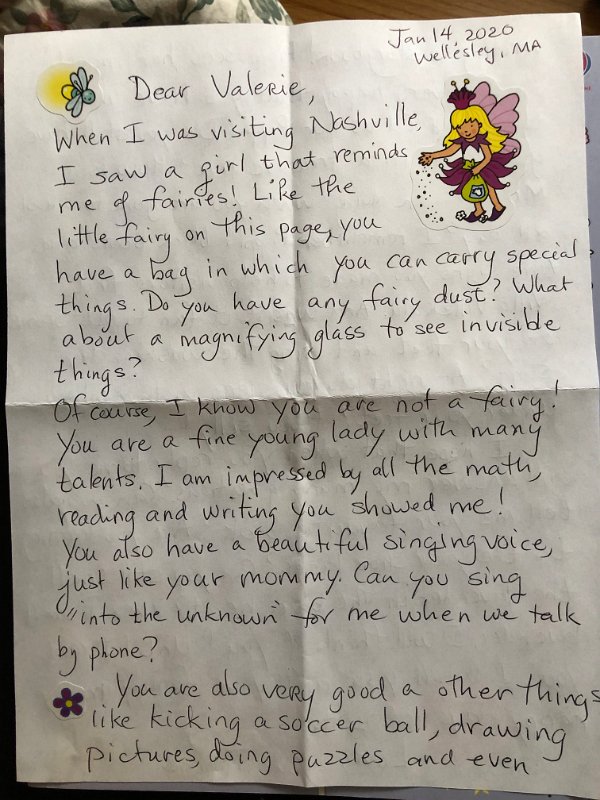 Jan 14, 2020
Wellesley, MA
Dear Valerie,
When I was visiting Nashville,
I saw a girl that reminds
me of fairies! Like the
little fairy on this page, you
have a bag in which you can carry special
things. Do you have any fairy dust? What
about a magnifying glass to see invisible
things?
Of course, I know you are not a fairy!
You are a fine young lady with many
talents. I am impressed by all the math,
reading and writing you showed me!
You also have a beautiful singing voice,
just like your mommy. Can you sing
"into the unknown" for me when we talk
by phone?
You are also very good a other things
like kicking a soccer ball, drawing
pictures, doing puzzles and even